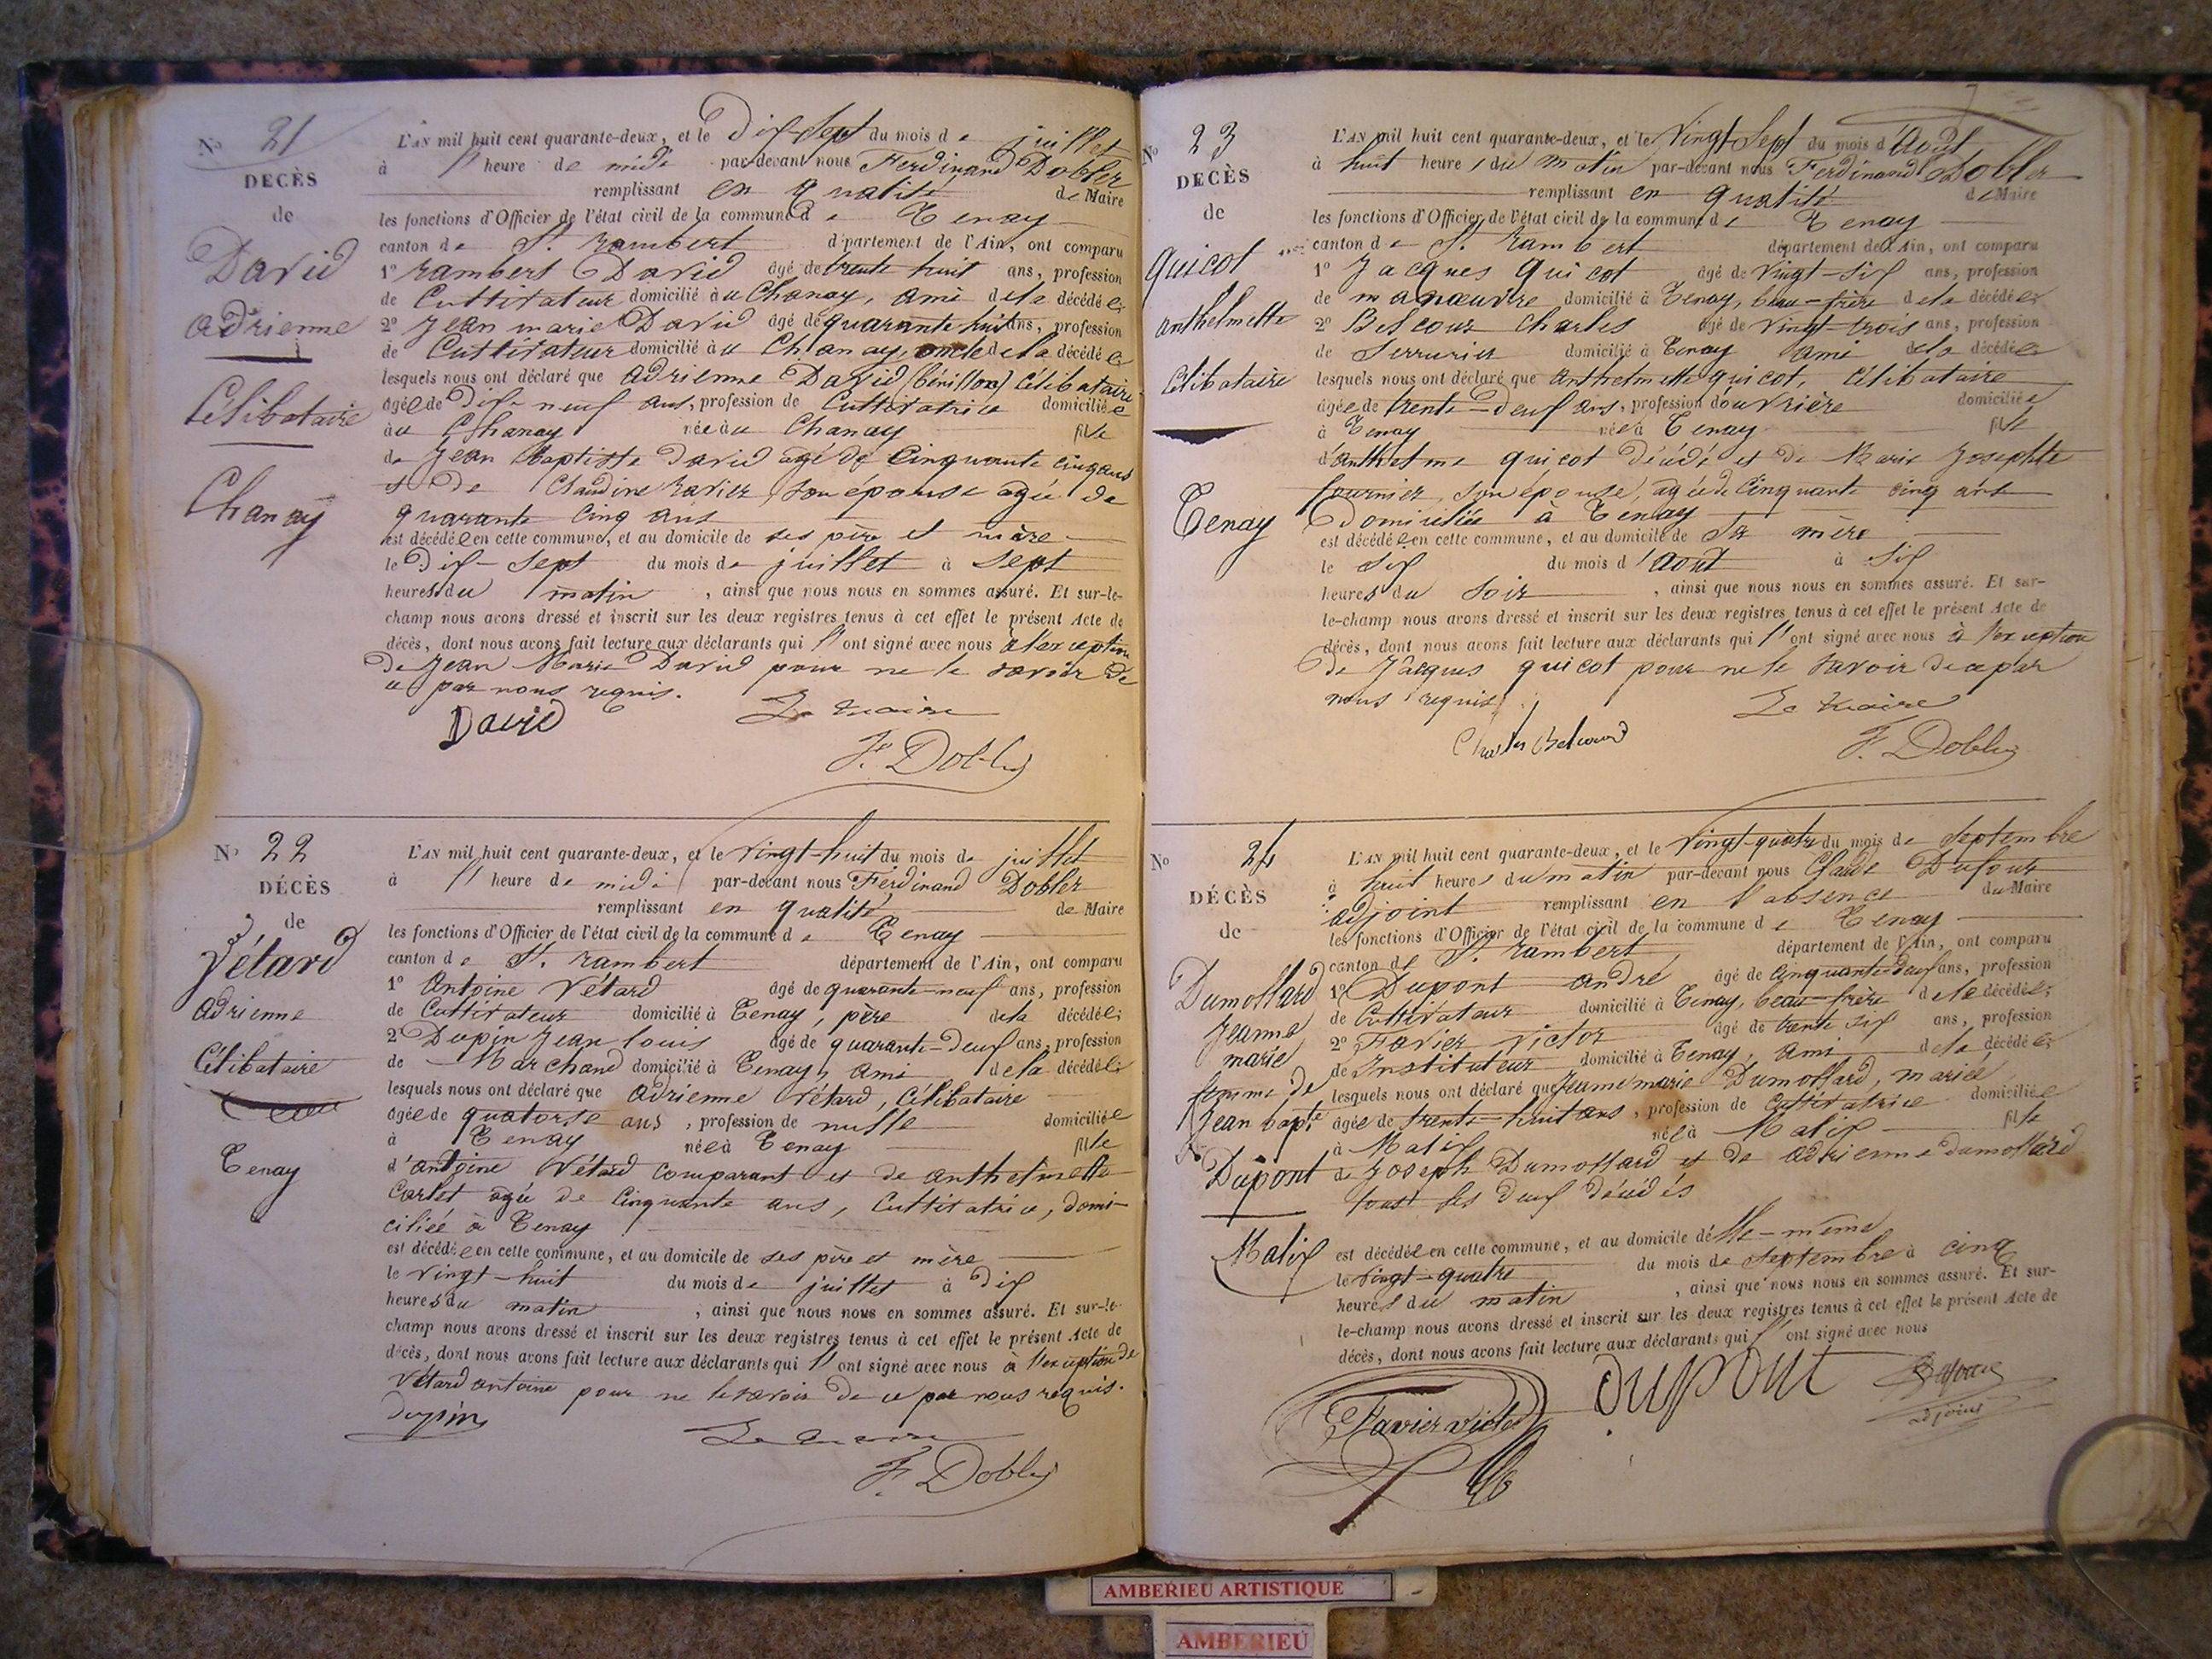 N° 21
DECÈS
de
David
adrienne
Célibataire
Chanay
L'AN mil huit cent quarante-deux, et le Dix-Sept du mois de juillet
à 1' heure de midi par-devant nous Ferdinand Dobler
remplissant en qualité de Maire
les fonctions d'Officier de l'état civil de la commune de Tenay
canton de St. rambert département de l'Ain, ont comparu
1° rambert David âgé de trente huit ans, profession
de Cultivateur domicilié au Chanay, ami de la décédée;
2° Jean marie David âgé de quarante huit ans, profession
de Cultivateur domicilié au Chanay, oncle de la décédée
lesquels nous ont déclaré que adrienne David (bénillon) Célibataire
agée de Dix-neuf ans, profession de Cultivatrice domiciliée
au Chanay née au Chanay fille
de Jean baptiste David agé de Cinquante cinq ans
et de Claudine ravier son épouse agée de
quarante cinq ans
est décédée en cette commune, et au domicile de ses père et mère
le Dix-Sept du mois de juillet à Sept
heures du matin, ainsi que nous nous en sommes assuré. Et sur-le-
champ nous avons dressé et inscrit sur les deux registres tenus à cet effet le présent Acte de
décès, dont nous avons fait lecture aux déclarants qui l'ont signé avec nous à l'exception
de Jean Marie David pour ne le savoir de
ce par nous requis.
David Le maire
F. Dobler
N° 22
DÉCÈS
de
Vétard
adrienne
Célibataire
Tenay
L'AN mil huit cent quarante-deux, et le Vingt-huit du mois de juillet
à 1' heure de midi par-devant nous Ferdinand Dobler
remplissant en qualité de Maire
les fonctions d'Officier de l'état civil de la commune de Tenay
canton de St. rambert département de l'Ain, ont comparu
1° Antoine Vétard âgé de quarante-neuf ans, profession
de Cultivateur domicilié à Tenay, père de la décédée;
2° Dupin Jean louis âgé de quarante-Deux ans, profession
de Marchand domicilié à Tenay, ami de la décédée;
lesquels nous ont déclaré que adrienne Vétard, Célibataire
agée de quatorse ans, profession de nulle domiciliée
à Tenay née à Tenay fille
d'antoine Vétard comparant et de anthelmette
Carlet agée de Cinquante ans, Cultivatrice, domi-
ciliée à Tenay
est décédée en cette commune, et au domicile de ses père et mère
le vingt-huit du mois de juillet à Dix
heures du matin, ainsi que nous nous en sommes assuré. Et sur-le-
champ nous avons dressé et inscrit sur les deux registres tenus à cet effet le présent Acte de
décès, dont nous avons fait lecture aux déclarants qui l'ont signé avec nous à l'exception de
Vétard antoine pour ne le savoir de ce par nous requis.
dupin Le maire
F. Dobler
N° 23
DECÈS
de
quicot
anthelmette
Célibataire
Tenay
L'AN mil huit cent quarante-deux, et le Vingt-Sept du mois d'Août
à huit heures du matin par-devant nous Ferdinand Dobler
remplissant en qualité de Maire
les fonctions d'Officier de l'état civil de la commune de Tenay
canton de St. rambert département de l'Ain, ont comparu
1° Jacques quicot âgé de vingt-six ans, profession
de manoeuvre domicilié à Tenay, beau-frère de la décédée;
2° Belcour Charles âgé de vingt-trois ans, profession
de Serrurier domicilié à Tenay ami de la décédée
lesquels nous ont déclaré que anthelmette quicot, Célibataire
agée de trente-Deux ans, profession d'ouvrière domiciliée
à Tenay née à Tenay fille
d'anthelme quicot décédé et de Marie Josephte
fournier, son épouse, agée de Cinquante cinq ans
Domiciliée à Tenay
est décédée en cette commune, et au domicile de Sa mère
le Six du mois d'Aout à Six
heures du Soir, ainsi que nous nous en sommes assuré. Et sur-
le-champ nous avons dressé et inscrit sur les deux registres tenus à cet effet le présent Acte de
décès, dont nous avons fait lecture aux déclarants qui l'ont signé avec nous à l'exception
de Jacques quicot pour ne le savoir de ce par
nous requis
Le maire
F. Dobler
N° 24
DÉCÈS
de
Dumollard
Jeanne
marie
femme de
Jean bapte
Dupont
Malix
L'AN mil huit cent quarante-deux, et le Vingt-quatre du mois de Septembre
à huit heures du matin par-devant nous Claude Dufour
adjoint remplissant en l'absence du Maire
les fonctions d'Officier de l'état civil de la commune de Tenay
canton de St. rambert département de l'Ain, ont comparu
1° Dupont andré âgé de Cinquante-Deux ans, profession
de Cultivateur domicilié à Tenay, beau-frère de la décédée;
2° Favier Victor âgé de trente six ans, profession
de Instituteur domicilié à Tenay, ami de la décédée;
lesquels nous ont déclaré que Jeanne marie Dumollard, mariée
agée de trente-huit ans, profession de Cultivatrice domiciliée
à Malix née à Malix fille
de Joseph Dumollard et de adrienne dumollard
tous les deux décédés
est décédée en cette commune, et au domicile d'elle-même
le vingt-quatre du mois de Septembre à cinq
heures du matin, ainsi que nous nous en sommes assuré. Et sur-
le-champ nous avons dressé et inscrit sur les deux registres tenus à cet effet le présent Acte de
décès, dont nous avons fait lecture aux déclarants qui l'ont signé avec nous
Favier victor DUPONT Dufour
adjoint
AMBERIEU ARTISTIQUE
AMBERIEU